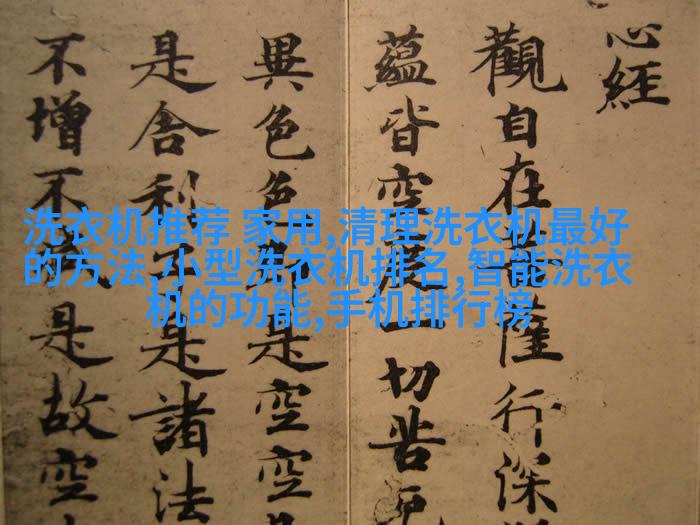 心經
觀自在菩薩行深
蘊皆空度一切苦厄
異色色即是空空
是舍利子是諸法
不增不減是故空
洗衣机推荐 家用,清理洗衣机最好
的方法,小型洗衣机排名,智能洗衣
机的功能,手机排行榜